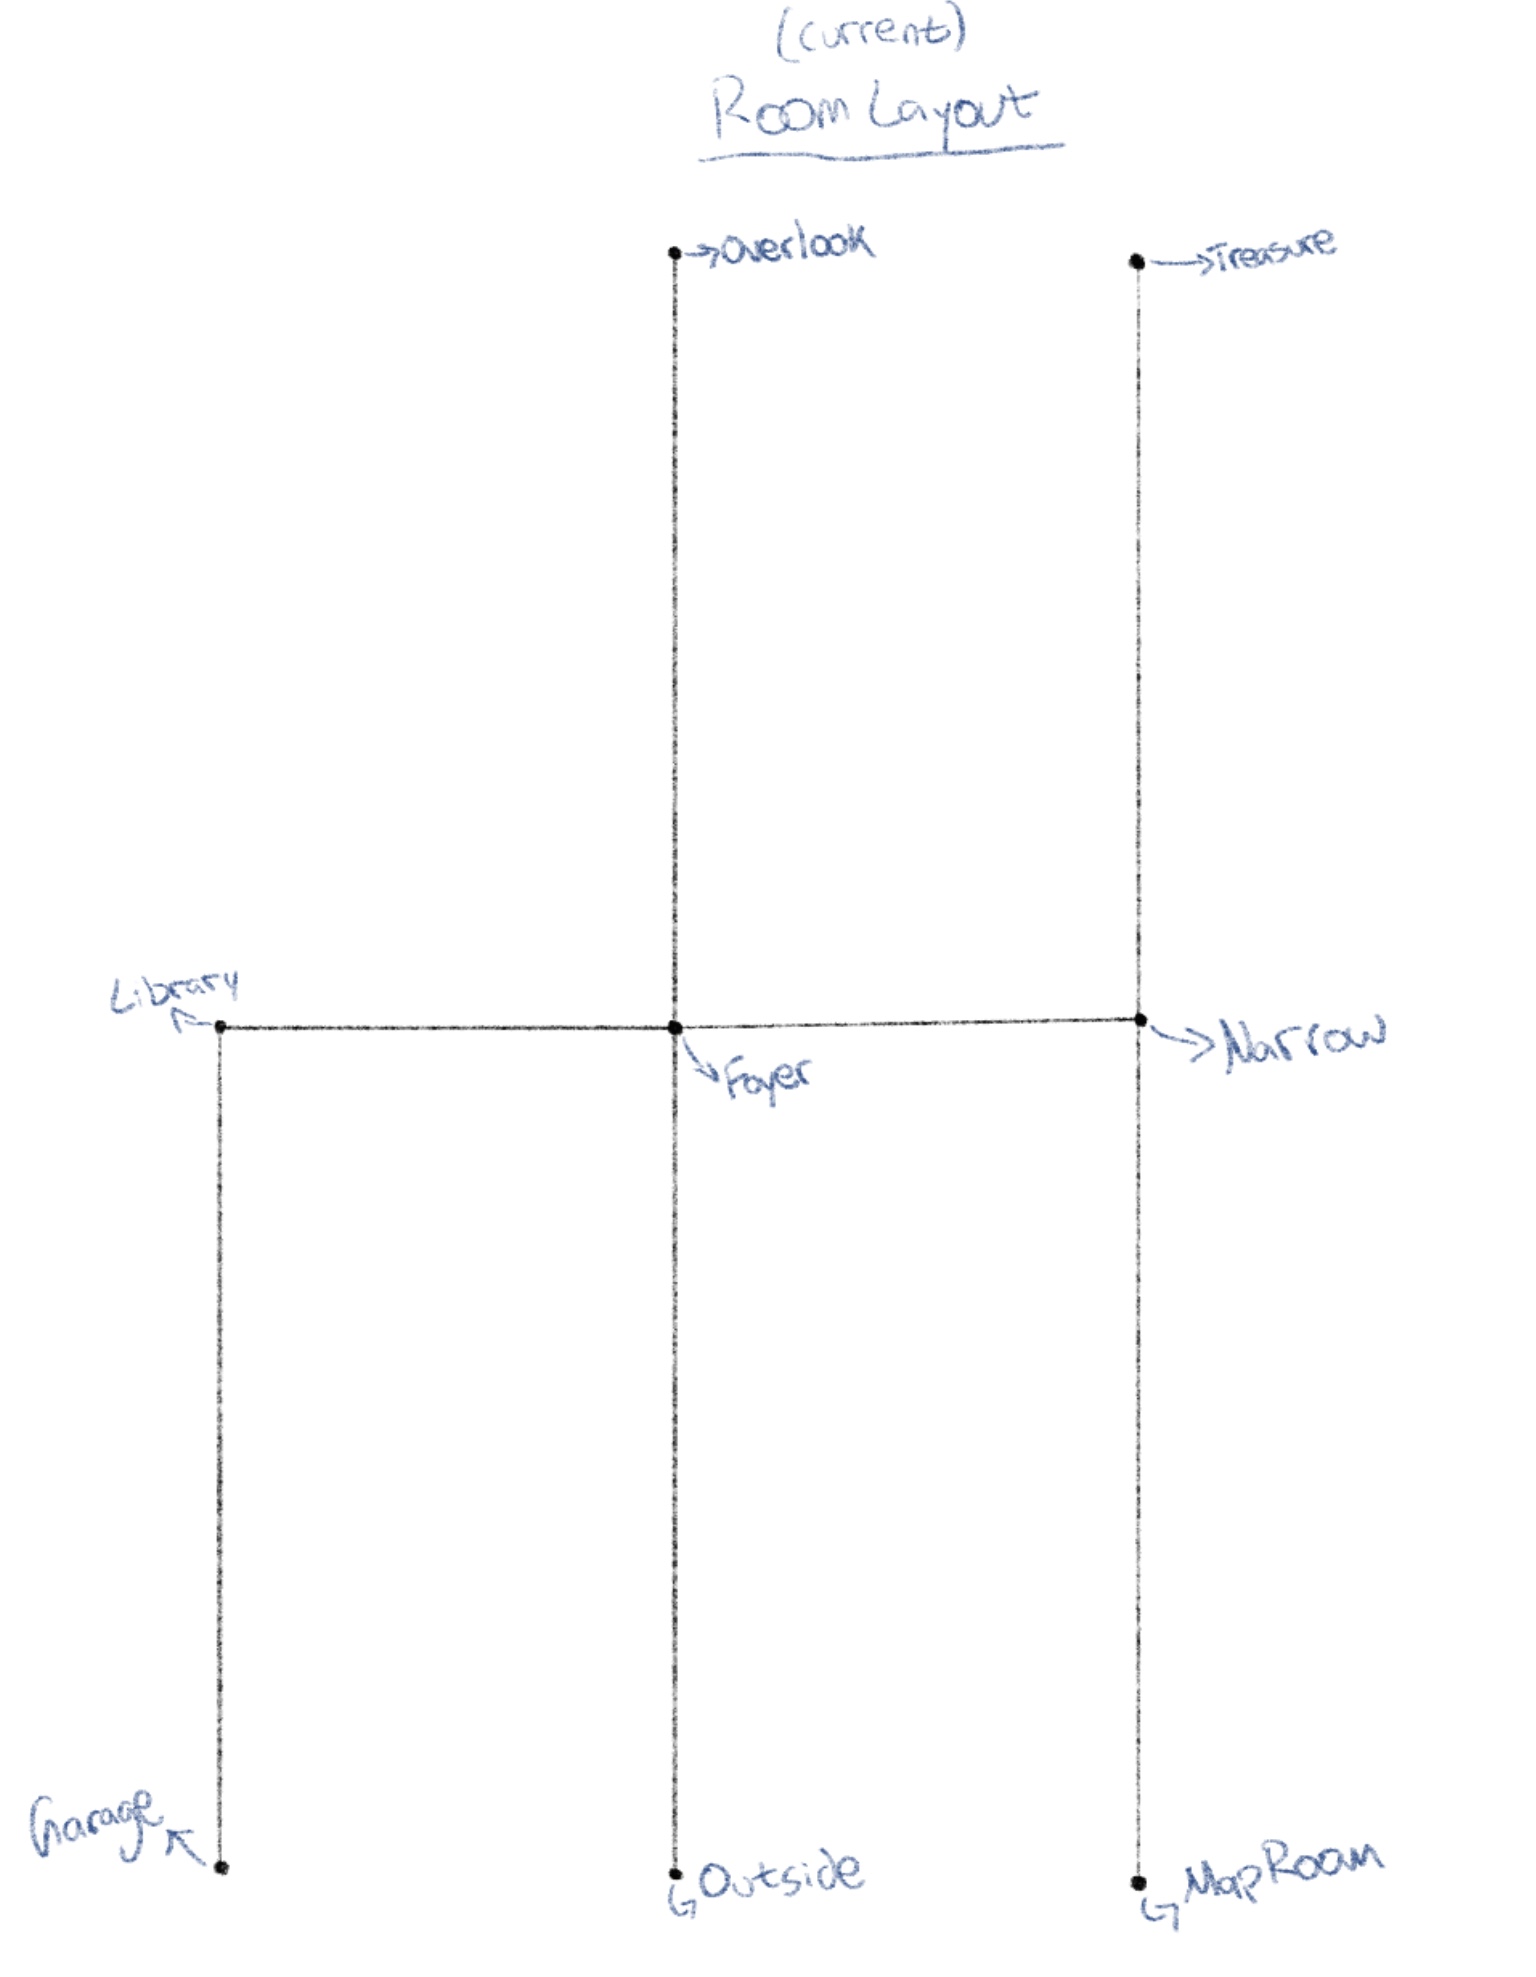 (current)
Room Layout
Overlook
Treasure
Library
Foyer
Narrow
Garage
Outside
Map Room